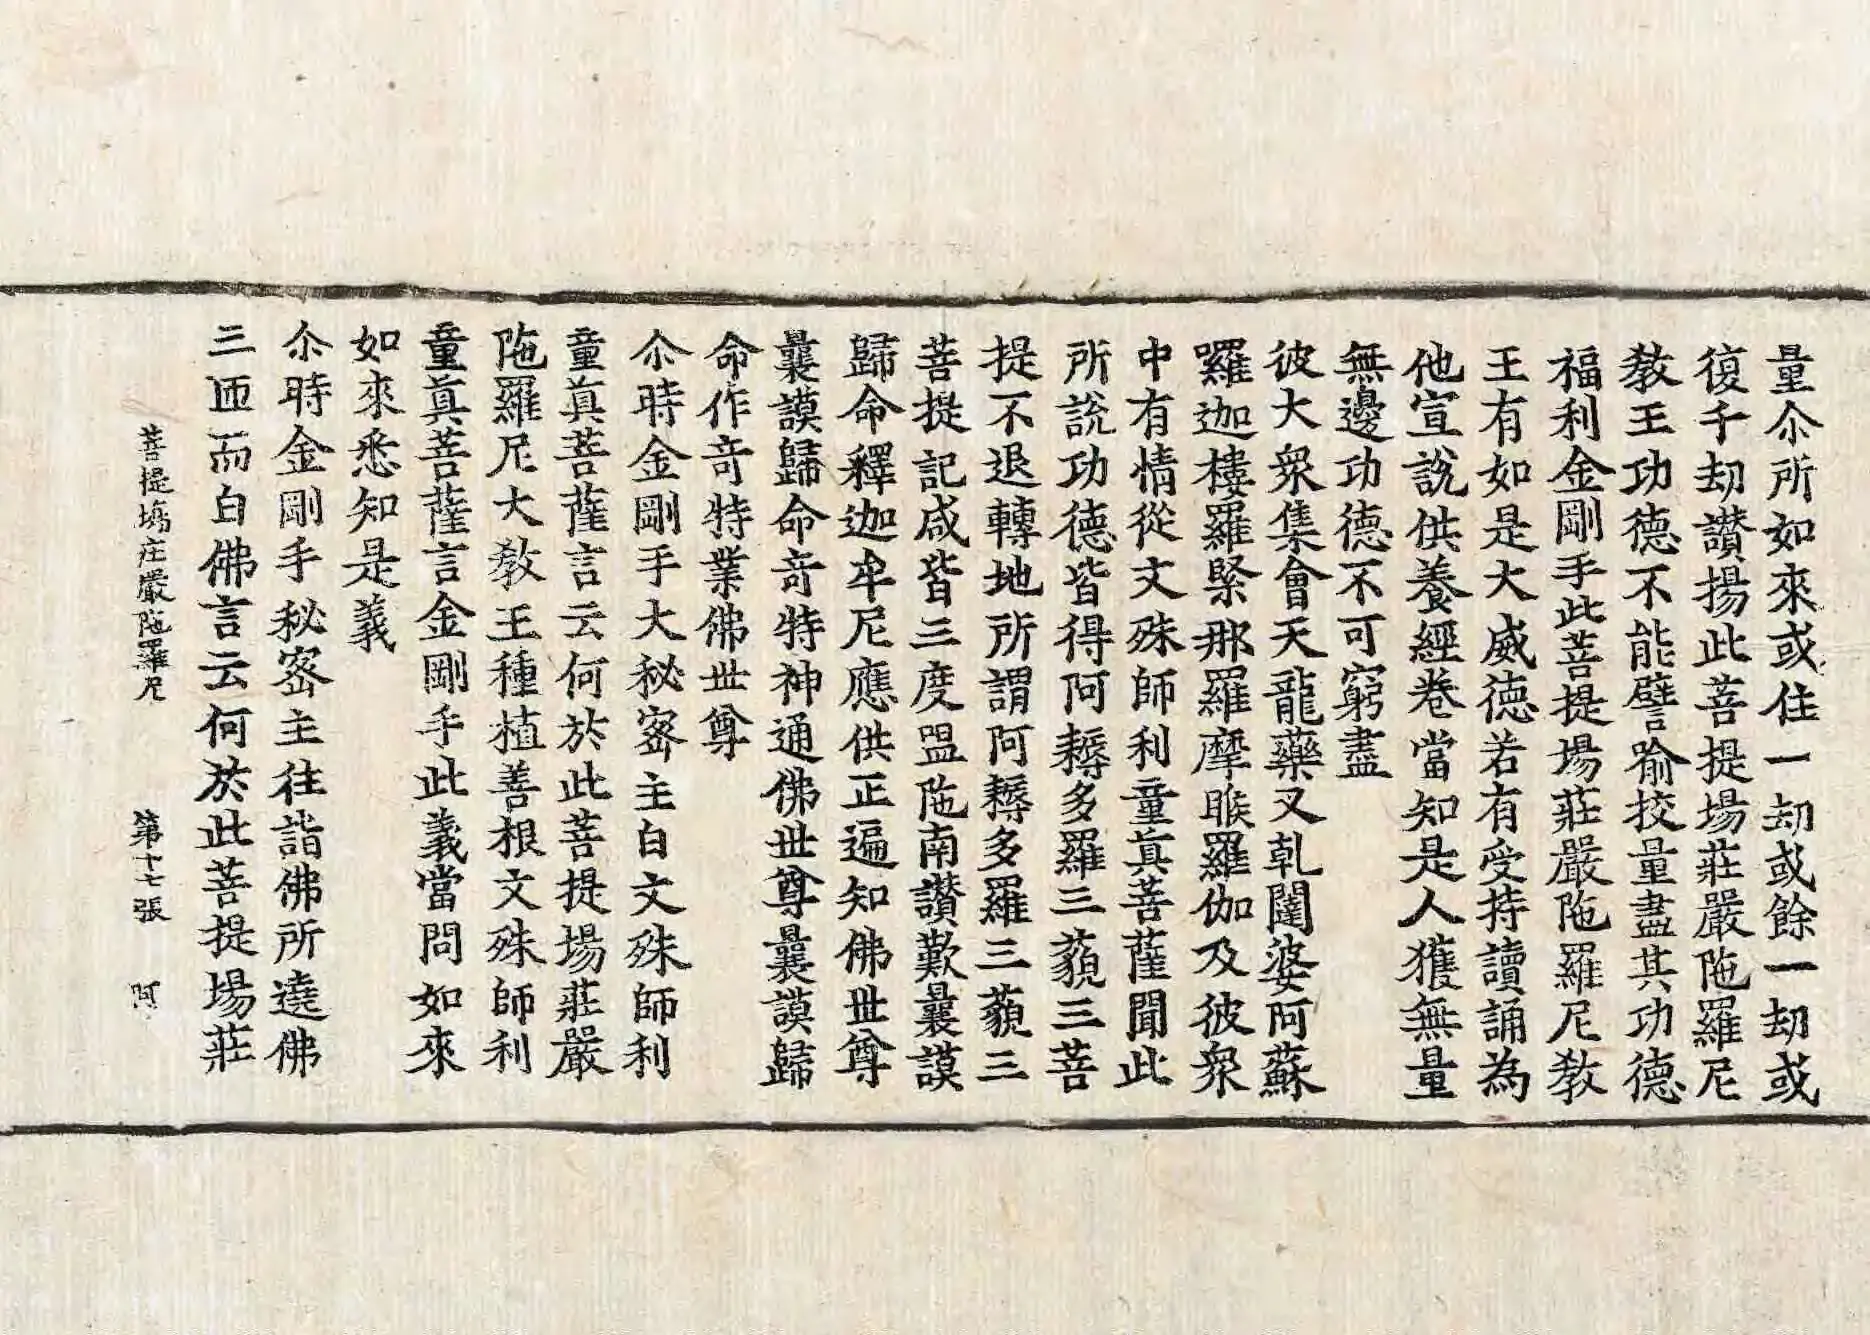 量尒所如來或住一劫或餘一劫或
復千劫讃揚此菩提場莊嚴陁羅尼
教王功德不能譬喻挍量盡其功德
福利金剛手此菩提場莊嚴陁羅尼教
王有如是大威德若有受持讀誦為
他宣說供養經卷當知是人獲無量
無邊功德不可窮盡
彼大衆集會天龍藥叉乹闥婆阿蘇
囉迦樓羅緊那羅摩睺羅伽及彼衆
中有情從文殊師利童真菩薩聞此
所說功德皆得阿耨多羅三藐三菩
提不退轉地所謂阿耨多羅三藐三
菩提記咸皆三度唱陁南讃歎曩謨
歸命釋迦牟尼應供正遍知佛世尊
曩謨歸命奇特神通佛世尊曩謨歸
命作奇特業佛世尊
尒時金剛手大秘密主白文殊師利
童真菩薩言云何於此菩提場莊嚴
陁羅尼大教王種植善根文殊師利
童真菩薩言金剛手此義當問如來
如來悉知是義
尒時金剛手秘密主往詣佛所遶佛
三匝而白佛言云何於此菩提場莊
菩提場庄嚴陁羅尼 第十七張 阿